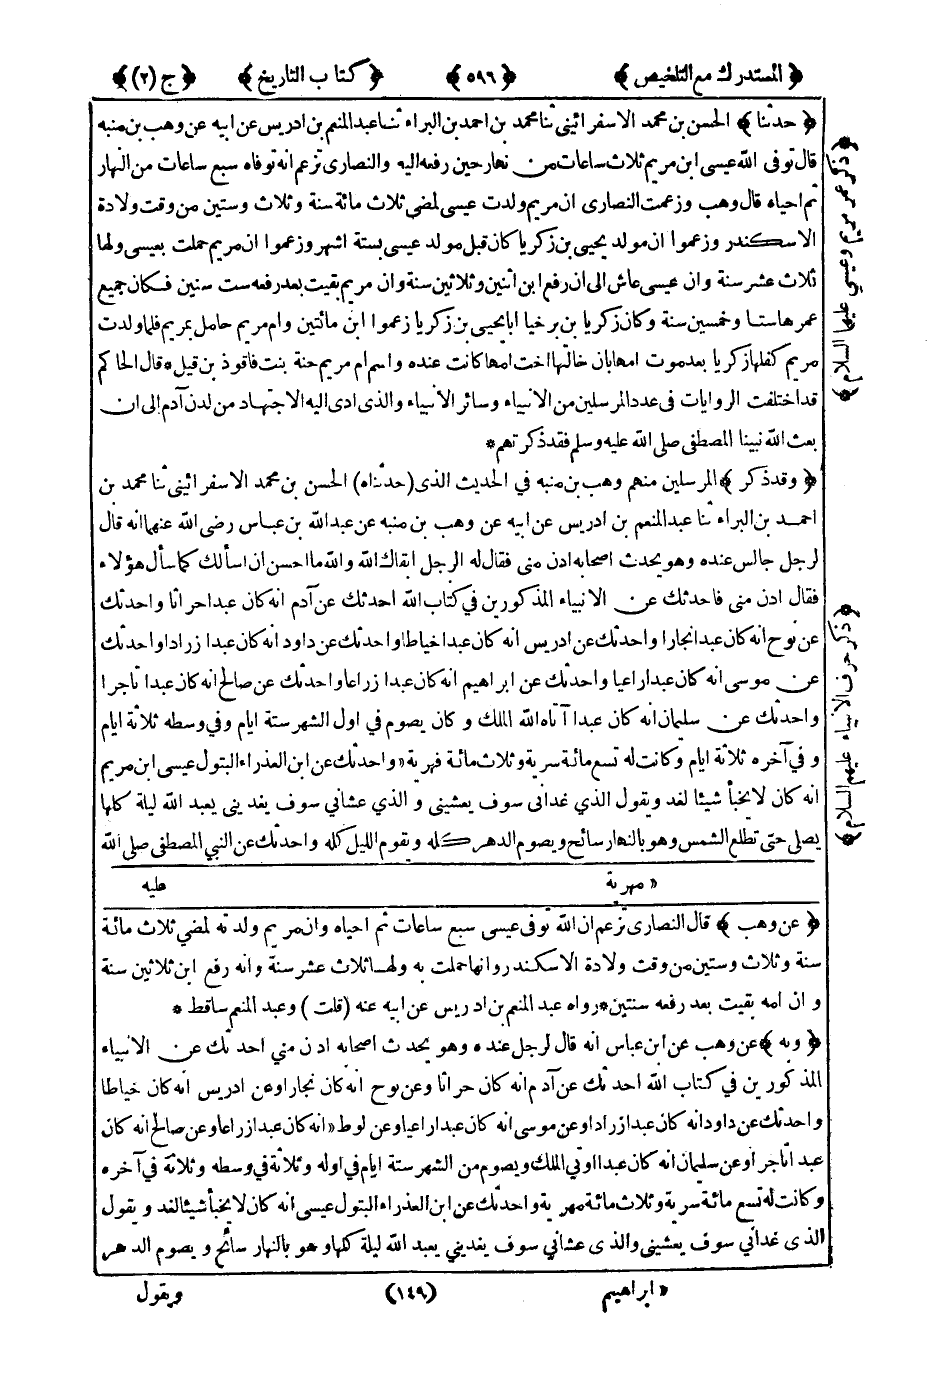 ﴿ المستدرك مع التلخيص ﴾ ﴿ ٥٩٦ ﴾ ﴿ كتاب التاريخ ﴾ ﴿ ج (٢) ﴾
﴿ حدثنا ﴾ الحسن بن محمد الاسفرائيني ثنا محمد بن احمد بن البراء ثنا عبد المنعم بن ادريس عن ابيه عن وهب بن منبه
قال توفى الله عيسى ابن مريم ثلاث ساعات من نهار حين رفعه اليه والنصارى تزعم انه توفاه سبع ساعات من النهار
ثم احياه قال وهب وزعمت النصارى ان مريم ولدت عيسى لمضي ثلاث مائة سنة وثلاث وستين من وقت ولادة
الاسكندر وزعموا ان مولد يحيى بن زكريا كان قبل مولد عيسى بستة اشهر وزعموا ان مريم حملت بعيسى ولها
ثلاث عشر سنة وان عيسى عاش الى ان رفع ابن اثنين وثلاثين سنة وان مريم بقيت بعد رفعه ست سنين فكان جميع
عمرها ستا وخمسين سنة وكان زكريا بن برخيا ابا يحيى بن زكريا زعموا ابن مائتين وام مريم حامل بمريم فلما ولدت
مريم كفلها زكريا بعد موت امها بان خالتها اخت امها كانت عنده واسم ام مريم حنة بنت فاقوذ بن قيل * قال الحاكم
قد اختلفت الروايات في عدد المرسلين من الانبياء وسائر الانبياء والذي ادى اليه الاجتهاد من لدن آدم الى ان
بعث الله نبينا المصطفى صلى الله عليه وسلم فقد ذكرتهم *
﴿ وقد ذكر ﴾ المرسلين منهم وهب بن منبه في الحديث الذي (حدثناه) الحسن بن محمد الاسفرائيني ثنا محمد بن
احمد بن البراء ثنا عبد المنعم بن ادريس عن ابيه عن وهب بن منبه عن عبد الله بن عباس رضى الله عنهما انه قال
لرجل جالس عنده وهو يحدث اصحابه ادن مني فقال له الرجل ابقاك الله والله ما احسن ان اسألك كما سأل هؤلاء
فقال ادن مني فاحدثك عن الانبياء المذكورين في كتاب الله احدثك عن آدم انه كان عبدا حراثا واحدثك
عن نوح انه كان عبدا نجارا واحدثك عن ادريس انه كان عبدا خياطا واحدثك عن داود انه كان عبدا زرادا واحدثك
عن موسى انه كان عبدا راعيا واحدثك عن ابراهيم انه كان عبدا زراعا واحدثك عن صالح انه كان عبدا تاجرا
واحدثك عن سليمان انه كان عبدا آتاه الله الملك وكان يصوم في اول الشهر ستة ايام وفي وسطه ثلاثة ايام
وفي آخره ثلاثة ايام وكانت له تسع مائة سرية وثلاث مائة فهرية « واحدثك عن ابن العذراء البتول عيسى ابن مريم
انه كان لا يخبأ شيئا لغد ويقول الذي غداني سوف يعشيني والذي عشاني سوف يغديني يعبد الله ليلة كلها
يصلي حتى تطلع الشمس وهو بالنهار سائح ويصوم الدهر كله ويقوم الليل كله واحدثك عن النبي المصطفى صلى الله
« مهرية عليه
﴿ عن وهب ﴾ قال النصارى تزعم ان الله توفى عيسى سبع ساعات ثم احياه وان مريم ولدته لمضي ثلاث مائة
سنة وثلاث وستين من وقت ولادة الاسكندر وانها حملت به ولها ثلاث عشر سنة وانه رفع ابن ثلاثين سنة
وان امه بقيت بعد رفعه سنتين * رواه عبد المنعم بن ادريس عن ابيه عنه (قلت) وعبد المنعم ساقط *
﴿ وبه ﴾ عن وهب عن ابن عباس انه قال لرجل عنده وهو يحدث اصحابه ادن مني احدثك عن الانبياء
المذكورين في كتاب الله احدثك عن آدم انه كان حراثا وعن نوح انه كان نجارا وعن ادريس انه كان خياطا
واحدثك عن داود انه كان عبدا زرادا وعن موسى انه كان عبدا راعيا وعن لوط « انه كان عبدا زراعا وعن صالح انه كان
عبدا تاجرا وعن سليمان انه كان عبدا اوتي الملك ويصوم من الشهر ستة ايام في اوله وثلاثة في وسطه وثلاثة في آخره
وكانت له تسع مائة سرية وثلاث مائة مهرية واحدثك عن ابن العذراء البتول عيسى انه كان لا يخبأ شيئا لغد ويقول
الذي غداني سوف يعشيني والذي عشاني سوف يغديني يعبد الله ليلة كلها وهو بالنهار سائح ويصوم الدهر
« ابراهيم (١٤٩) ويقول
﴿ ذكر عمر مريم وعيسى عليهما السلام ﴾
﴿ ذكر حرف الانبياء عليهم السلام ﴾